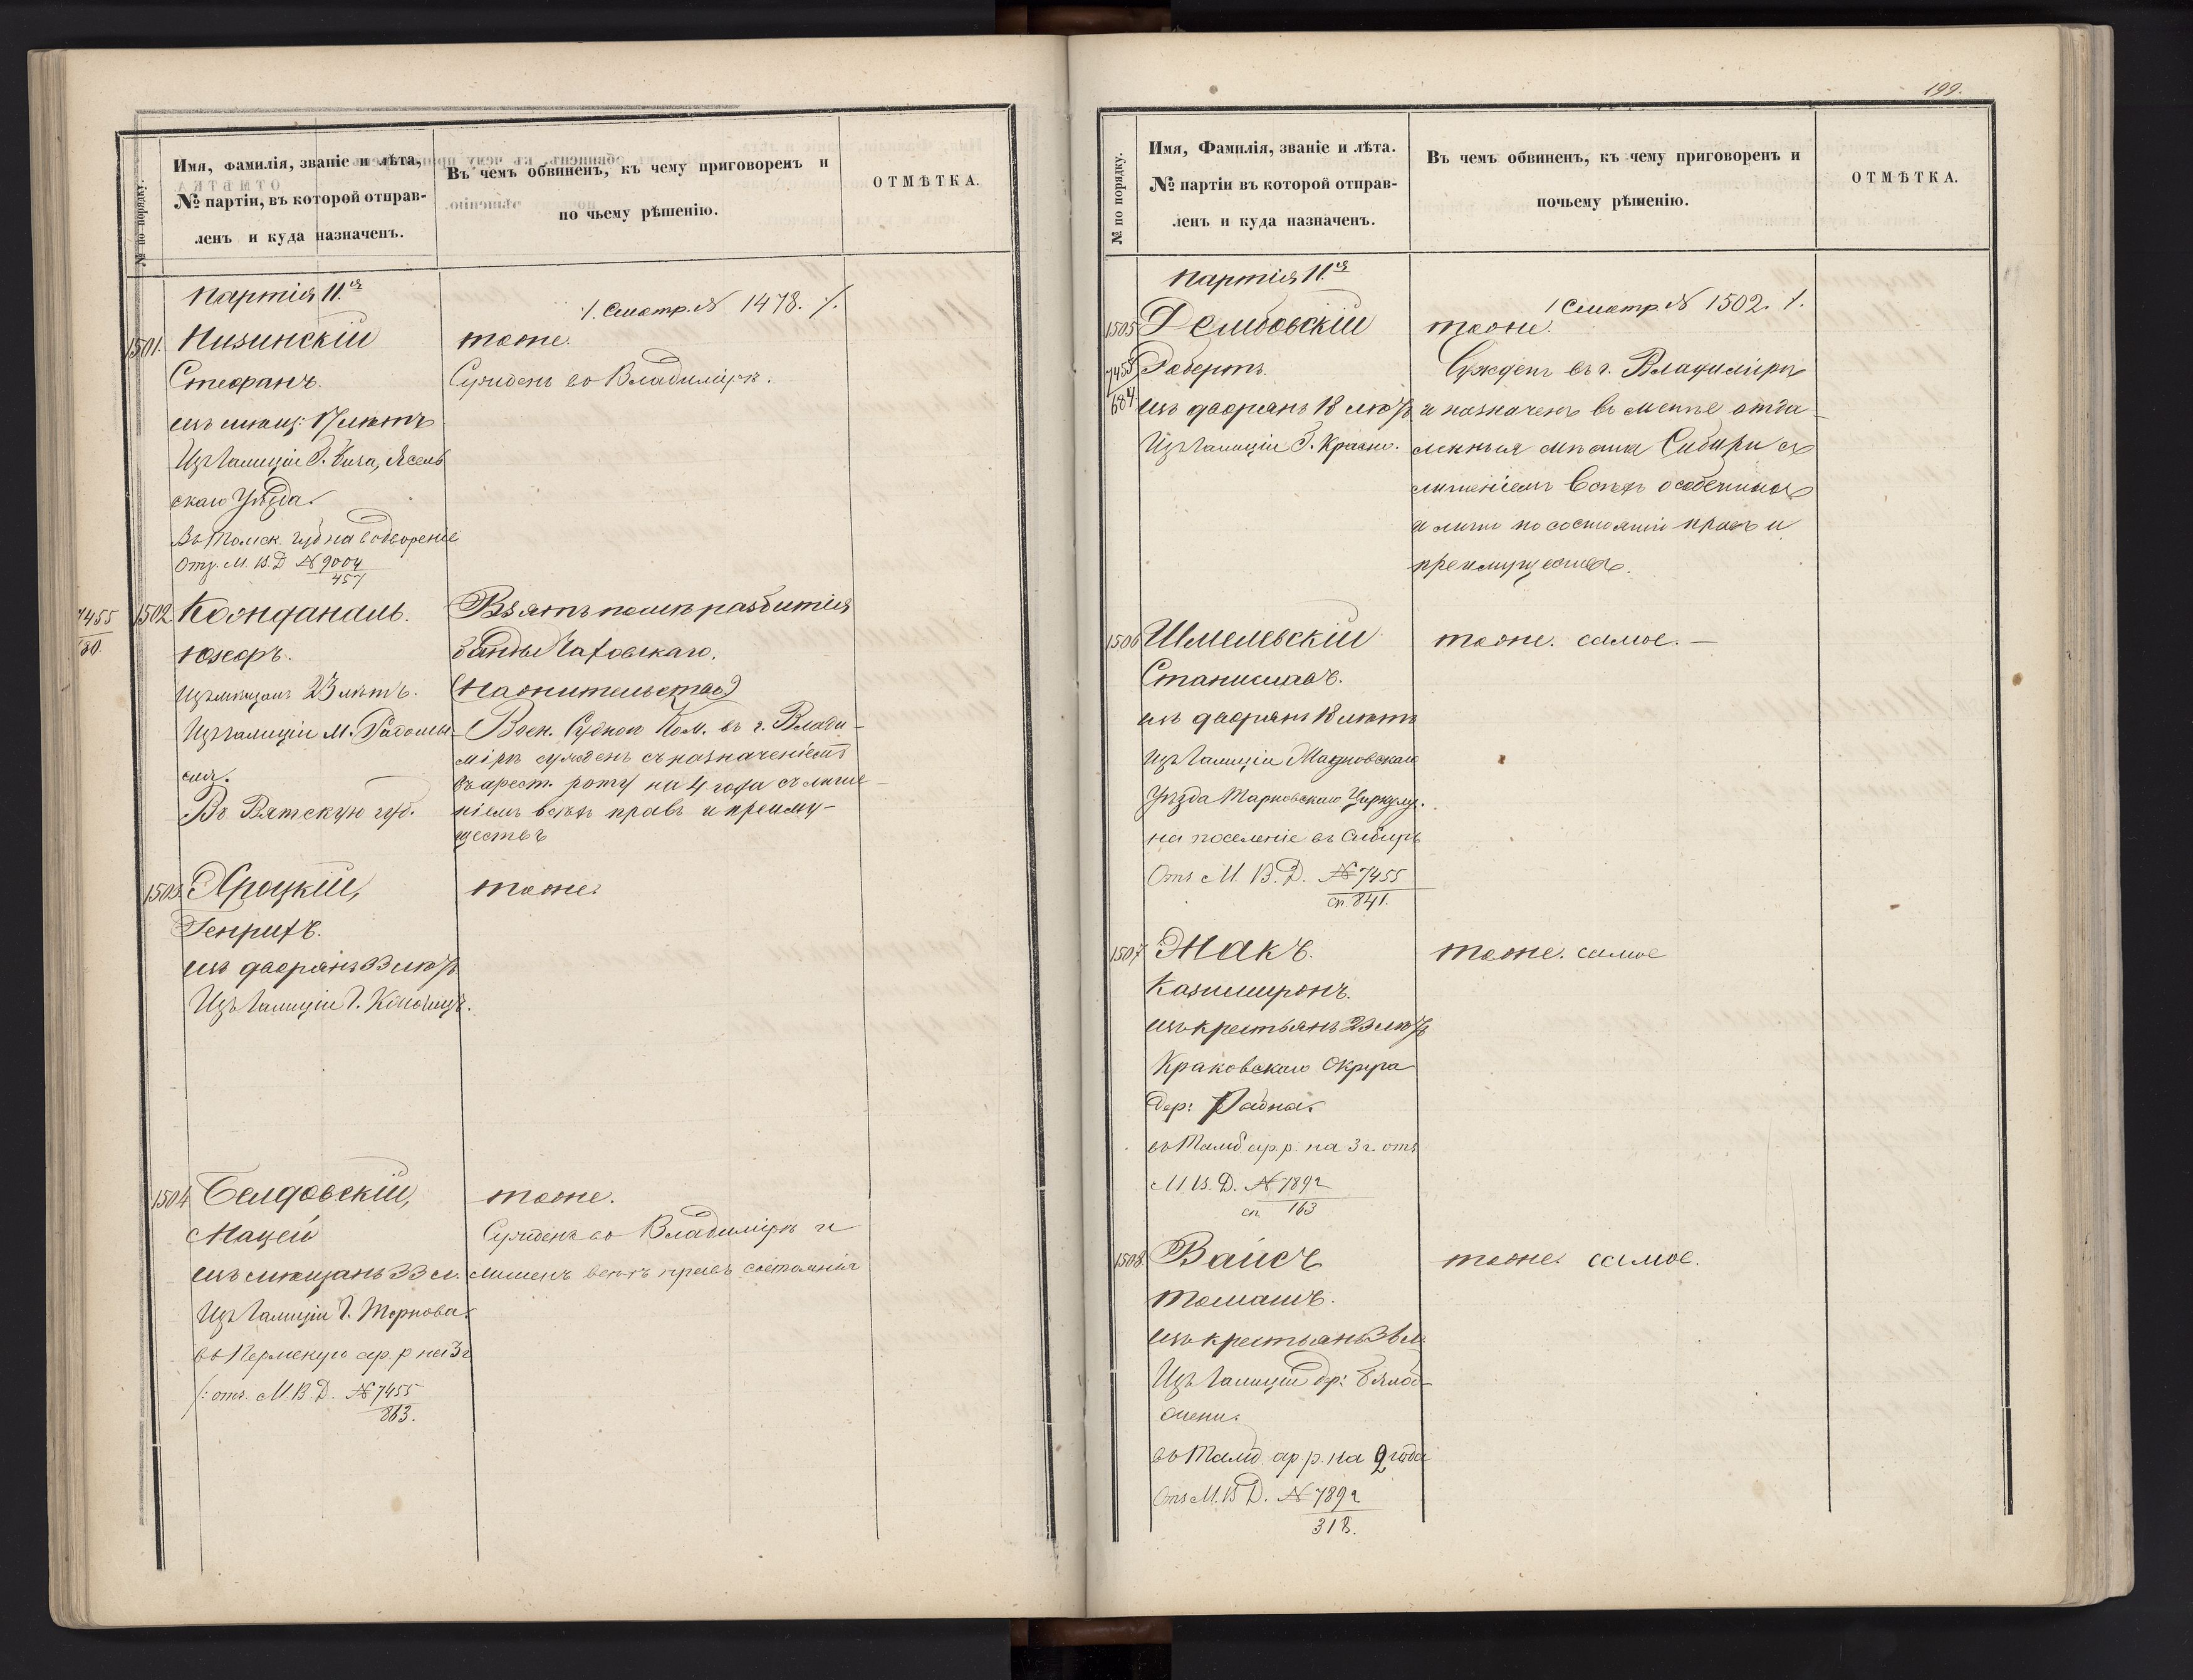 № по порядку.
Имя, Фамилія, званіе и лѣта,
№ партіи, въ которой отправ-
ленъ и куда назначенъ.
Въ чемъ обвиненъ, къ чему приговоренъ и
по чьему рѣшенію.
ОТМѢТКА.
Партія 11.ая
/. Смотр. № 1478. /.
1501. Низинскій
тоже.
Стефанъ.
Сужденъ во Владимірѣ.
изъ мѣщ: 17 лѣтъ
Изъ Галиціи
скаго Уѣзда.
Въ Томск. губ на водвореніе
Отз. М. В. Д № 9004
457
7455
80.
1502
Взятъ послѣ разбитія
Юзефъ.
банды Чаховскаго.
изъ мѣщанъ 23 лѣтъ.
Изъ Галиціи М. Радомы-
Воен. Судной Ком. въ г. Влади-
сля.
мірѣ сужденъ съ назначеніемъ
въ арест. роту на 4 года съ лише-
Въ Вятскую губ.
ніемъ всѣхъ правъ и преиму-
ществъ
1503. Хроцкій,
тоже.
Генрихъ.
изъ дворянъ 33 лѣтъ
Изъ Галиціи Г.
1504 Белдовскій,
тоже.
Мацей
Сужденъ во Владимірѣ и
изъ мѣщанъ 33 л.
лишенъ всѣхъ правъ состоянія
Изъ Галиціи Г. Тарнова.
въ Пермскую ар. р на 3 г
/: отз. М. В. Д. № 7455
863.
199.
№ по порядку.
Имя, Фамилія, званіе и лѣта.
№ партіи въ которой отправ-
ленъ и куда назначенъ.
Въ чемъ обвиненъ, къ чему приговоренъ и
почьему рѣшенію.
ОТМѢТКА.
Партія 11.ая
/ Смотр. № 1502. /.
1505 Дембовскій
тоже.
7455
684
Робертъ.
Сужденъ въ г. Владимірѣ
изъ дворянъ 18 лѣтъ
и назначенъ въ менѣе отда-
Изъ Галиціи Г.
ленныя мѣста Сибири съ
лишеніемъ всѣхъ особенныхъ
и лично по состоянію правъ и
преимуществъ.
1506 Шмелевскій
тоже. самое. —
Станиславъ.
изъ дворянъ 18 лѣтъ
Изъ Галиціи
Уѣзда Тарновскаго Циркула.
на поселеніе въ Сибирь
Отз М. В. Д. № 7455
сп. 841.
1507 Жакъ.
тоже. самое
изъ крестьянъ 23 лѣтъ
Краковскаго Округа
дер:
въ Тамб. ар. р. на 3 г. отз
М. В. Д. № 7892
сп 163
1508. Вайсъ
тоже. самое.
Томашъ.
изъ крестьянъ
Изъ Галиціи др:
въ Тамб. ар. р. на 2 года
Отз М. В Д. № 7892
318.